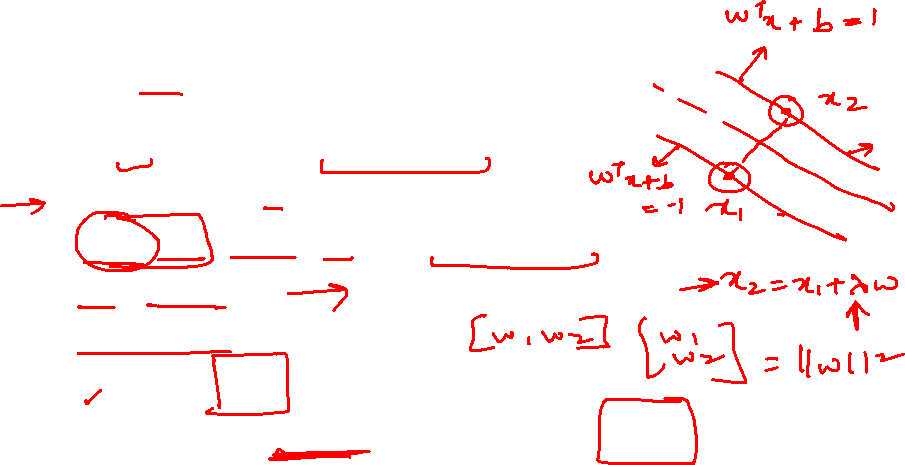 wᵀx + b = 1
x₂
wᵀx + b
= -1
x₁
→ x₂ = x₁ + λw
[w₁ w₂] [w₁
w₂] = ||w||²